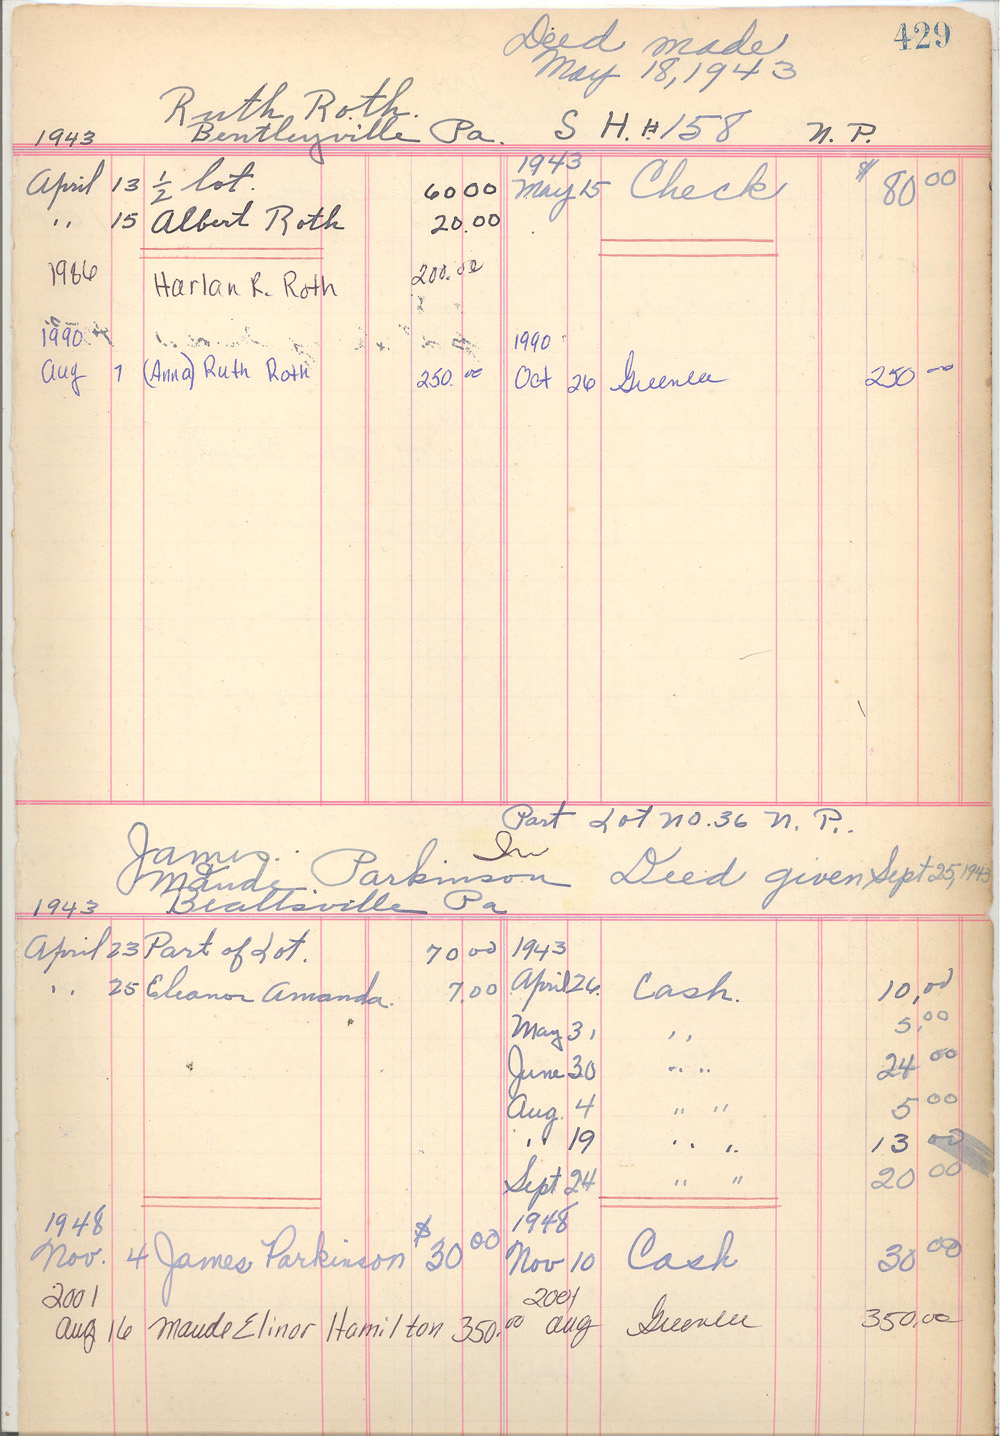 429
Deed made
May 18, 1943
Ruth Roth.
Bentleyville Pa. S H. # 158 N. P.
1943
April 13 ½ lot. 60 00
" 15 Albert Roth 20.00
1943
May 15 Check $ 80 00
1986 Harlan R. Roth 200.00
1990
Aug 7 (Anna) Ruth Roth 250.00
1990
Oct 26 Greenlee 250 00
Part Lot no. 36 N. P..
James
Maude Parkinson Deed given Sept 25, 1943
Beallsville Pa
1943
April 23 Part of Lot. 70 00
" 25 Eleanor Amanda. 7 00
1943
April 26. Cash. 10,00
May 31 " 5.00
June 30 " " 24 00
Aug. 4 " " 5 00
" 19 " " 13 00
Sept 24 " " 20 00
1948
Nov. 4 James Parkinson $ 30 00
1948
Nov 10 Cash 30 00
2001
Aug 16 Maude Elinor Hamilton 350.00
2001
Aug Greenlee 350.00